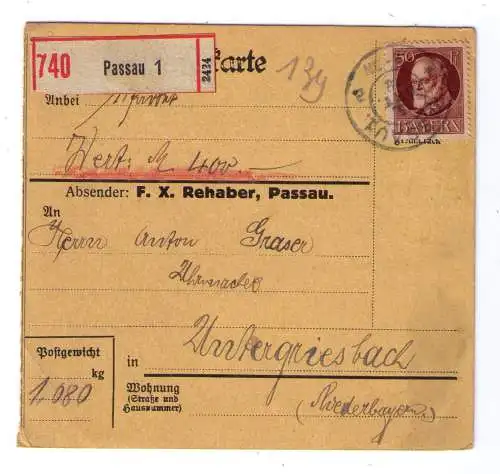 740 Passau 1 2424
karte
50 PF
BAYERN
Anbei
Wert M 400 —
Absender: F. X. Rehaber, Passau.
An
Herrn Anton Graser
Uhrmacher
Untergriesbach
Postgewicht
kg
1.080
in
Wohnung
(Straße und
Hausnummer)
(Niederbayern.)